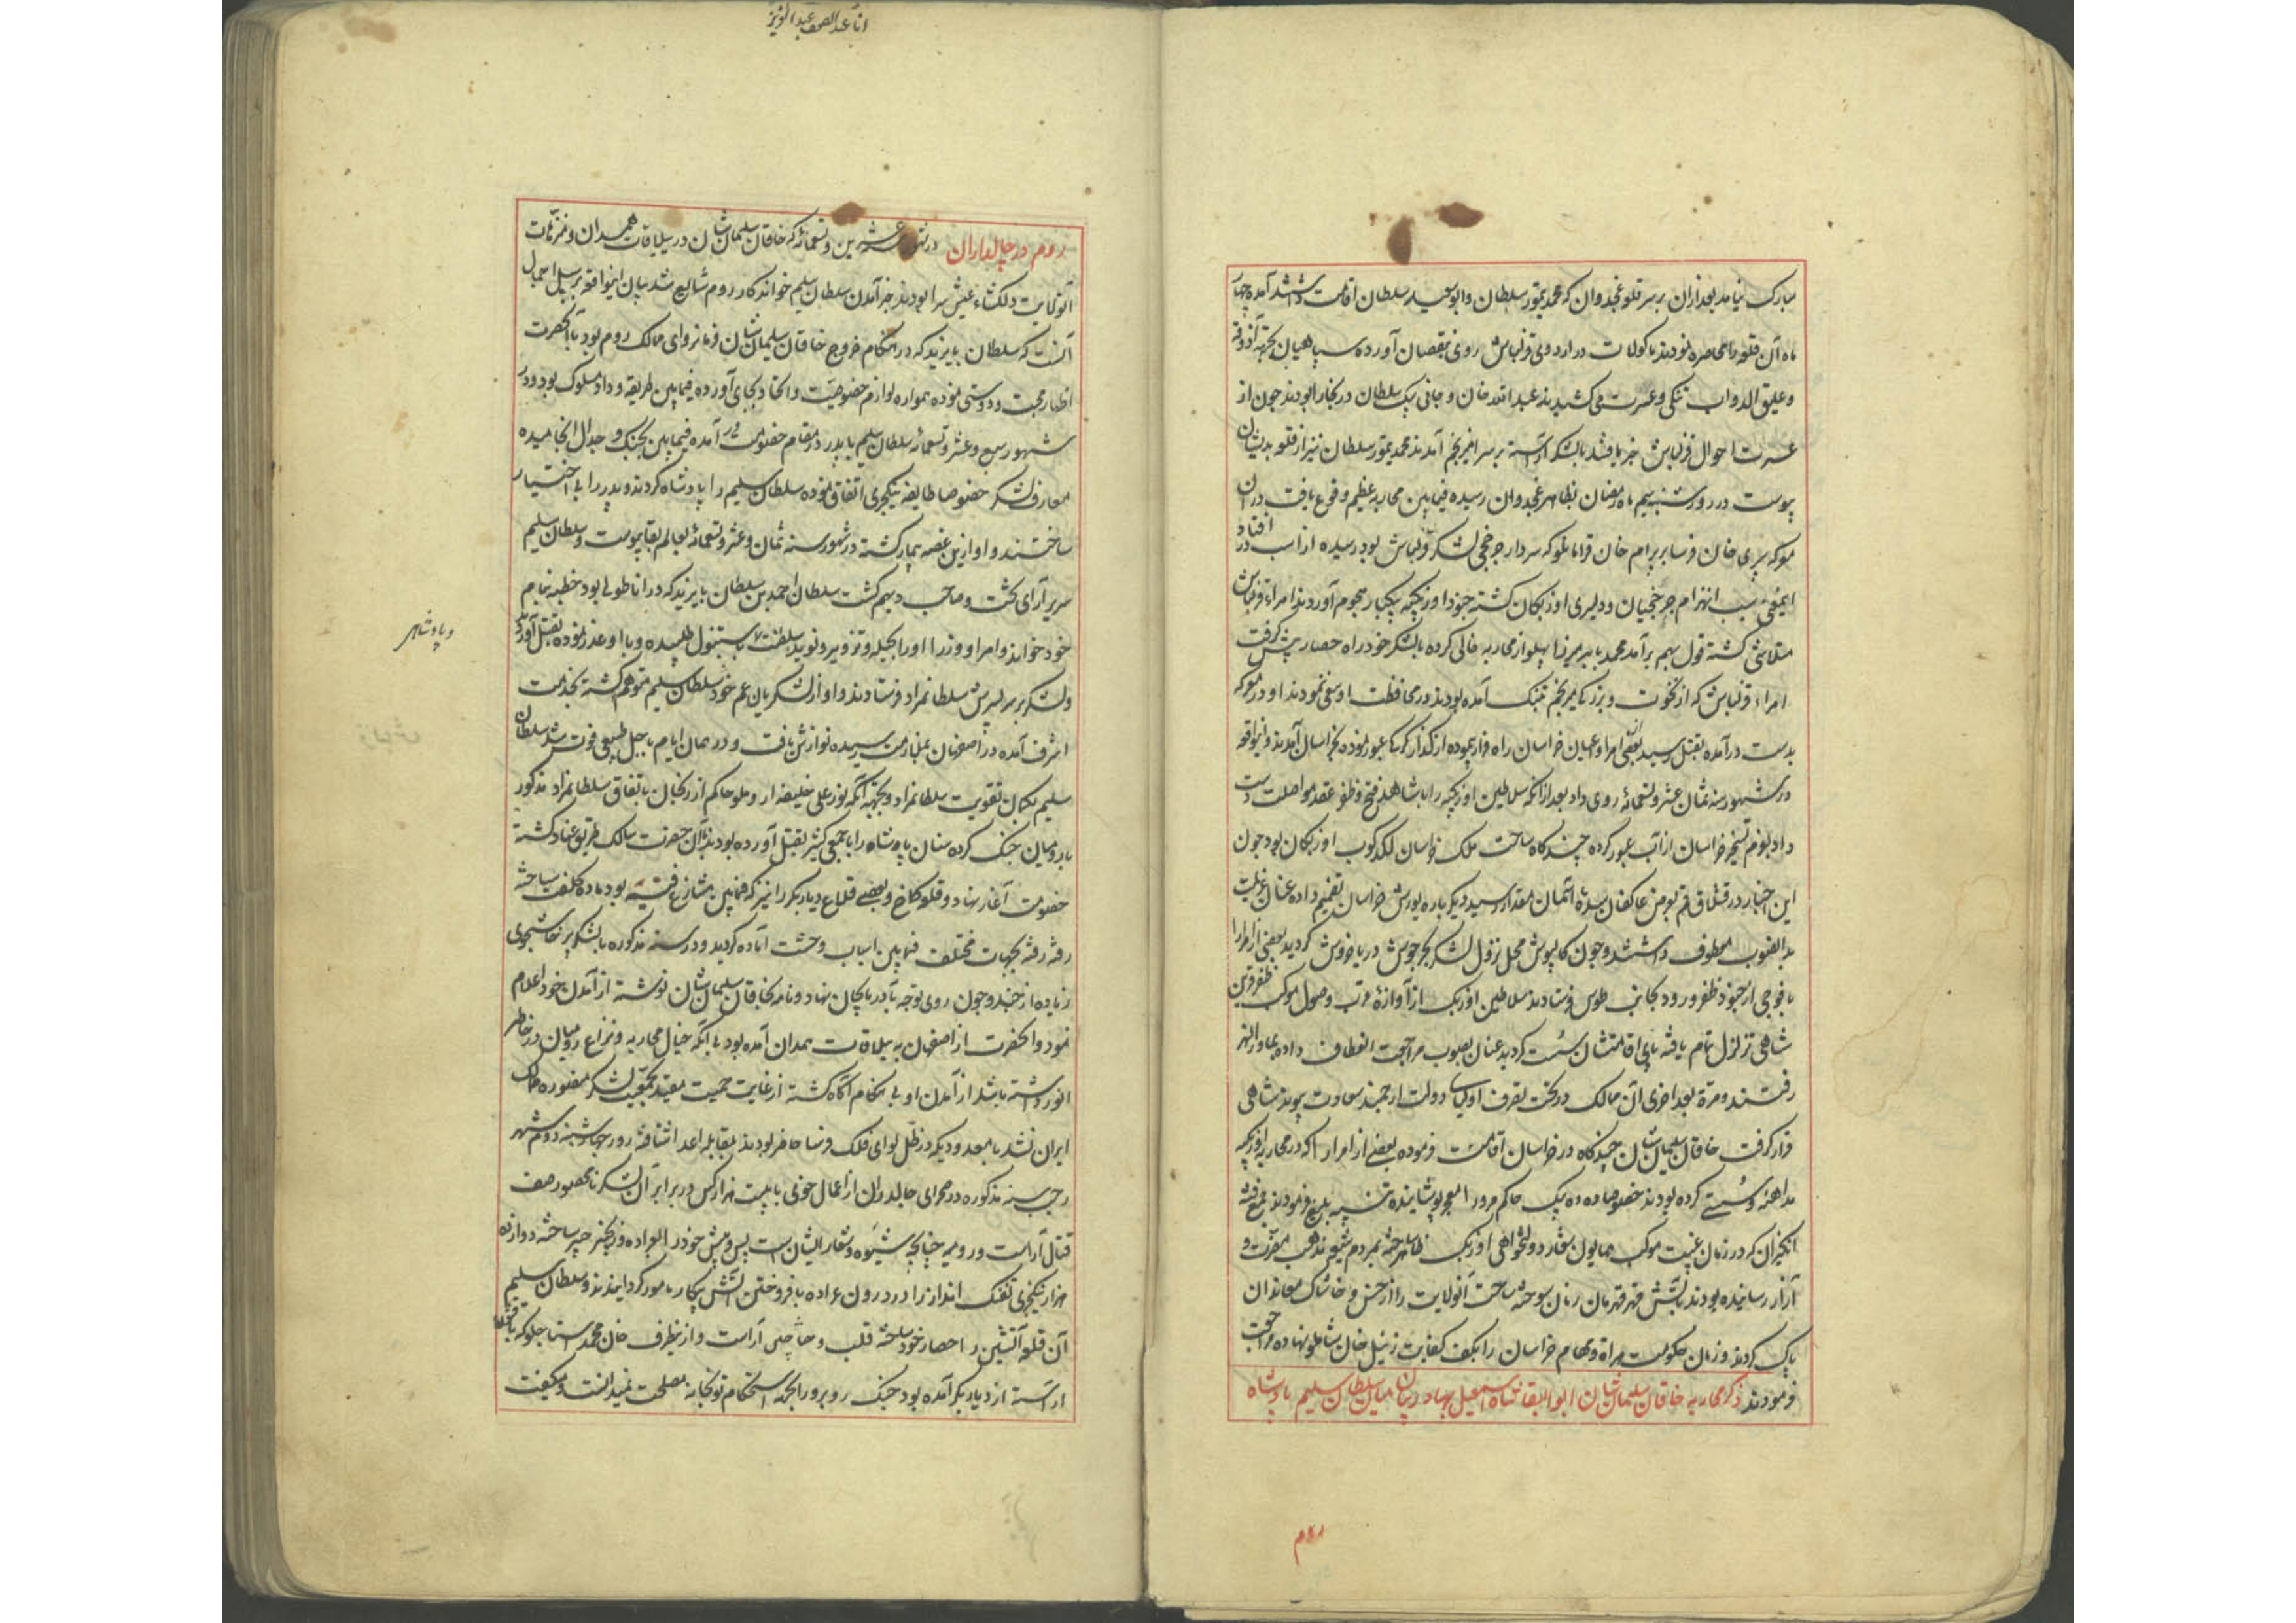 مبارک نیامد بعد از آن بر سر قلعه غجدوان که محمد تیمور سلطان و ابوسعید سلطان اقامت داشتند آمده چهار
ماه آن قلعه را محاصره نمودند ماکولات در اردوی قزلباش روی بنقصان آورده سپاهیان بجهة آذوقه
و علیق الدواب تنکی و عسرت می کشیدند عبدالله خان و جانی بیک سلطان در بخارا بودند چون از
عسرت احوال قزلباش خبر یافتند با لشکر آراسته بر سر امیر نجم آمدند محمد تیمور سلطان نیز از قلعه بدیشان
پیوست در روز سه شنبه سیم ماه رمضان بظاهر غجدوان رسیده فیمابین محاربه عظیم وقوع یافت در آن
معرکه تیری خان فرسا بر بیرام خان قرامانلو که سردار چرخچی لشکر قزلباش بود رسیده از اسب در افتاد
اینمعنی سبب انهزام چرخچیان و دلیری اوزبکان کشته جنود اوزبکیه بیکبار هجوم آوردند امراء قزلباش
متلاشی کشته قول بهم برآمد محمد بابر میرزا پهلو از محاربه خالی کرده با لشکر خود راه حصار پیش کرفت
امراء قزلباش که از نخوت و بزرکی امیر نجم بتنک آمده بودند در محافظت او سعی ننمودند او در معرکه
بدست درآمده بقتل رسید بعضی امرا و اعیان خراسان راه فرار پیموده از کذار کرکی عبور نموده بخراسان آمدند و اینواقعه
در شهور سنه ثمان عشر و تسعمائه روی داد بعد از آنکه سلاطین اوزبکیه را با شاهد فتح و ظفر عقد مواصلت دست
داد بعزم تسخیر خراسان از آب عبور کرده چند کاه ساحت ملک خراسان لکدکوب اوزبکان بود چون
این اخبار در قشلاق قم بعرض عاکفان سده آسمان مقدار رسید دیکر باره یورش خراسان تصمیم داده عنان عزیمت
بدانصوب معطوف داشتند و چون کالپوش محل نزول لشکر بحر جوش دریا خروش کردید بعضی از امرا را
با فوجی از جنود ظفر ورود بجانب طوس فرستادند سلاطین اوزبک از آوازه قرب وصول موکب ظفر قرین
شاهی تزلزل تمام یافته پای اقامتشان سست کردید عنان بصوب مراجعت انعطاف داده بماوراءالنهر
رفتند و مرة بعد اخری آن ممالک در تحت تصرف اولیای دولت ارجمند سعادت پیوند شاهی
قرار کرفت خاقان سلیمان شان چند کاه در خراسان اقامت فرموده بعضی از امرا را که در محاربه اوزبکیه
مداهنه و سستی کرده بودند خصوصا ده ده بیک حاکم مرو را معجر پوشانیده تنبیه بلیغ فرمودند جمعی فتنه
انکیزان که در زمان غیبت موکب همایون بشعار دولتخواهی اوزبک ظاهر ساخته بمردم شیعه مذهب مضرت و
آزار رسانیده بودند بآتش قهر قهرمان زمان سوخته ساحت آنولایت را از خس و خاشاک معاندان
پاک کردند و زمان حکومت هراة و مهام خراسان را بکف کفایت زینل خان شاملو نهاده مراجعت
فرمودند ذکر محاربه خاقان سلیمان شان ابوالبقا شاه اسمعیل بهادر خان با سلطان سلیم پادشاه
روم
انا عبد الصمد عبد العزیز
روم در چالداران در شهور عشرین و تسعمائه که خاقان سلیمان شان در ییلاقات همدان و نزهات
آنولایت دلکشاء عیش سرا بودند خبر آمدن سلطان سلیم خواندکار روم شایع شد بیان اینواقعه بر سبیل اجمال
آنست که سلطان بایزید که در هنکام خروج خاقان سلیمان شان فرمانروای ممالک روم بود با آنحضرت
اظهار محبت و دوستی نموده همواره لوازم خصوصیت و اتحاد بجای آورده فیمابین طریقه وداد مسلوک بود و در
شهور سبع و عشر و تسعمائه سلطان سلیم با پدر در مقام خصومت در آمده فیمابین بجنک و جدال انجامیده
معارف لشکر خصوصا طایفه ینکچری اتفاق نموده سلطان سلیم را پادشاه کردند و پدر را بی اختیار
ساختند و او از این غصه بیمار کشته در شهور سنه ثمان و عشر و تسعمائه بعالم بقا پیوست و سلطان سلیم
سریر آرای کشت و صاحب دیهیم کشت سلطان احمد بن سلطان بایزید که در اناطولی بود خطبه بنام
خود خواند و امرا و وزرا او را بحیله و تزویر و نوید سلطنت باستنبول طلبیده و با او غدر نموده بقتل آوردند
و لشکر بر سر پسرش سلطانمراد فرستادند و او از لشکریان عم خود سلطان سلیم متوهم کشته بخدمت
اشرف آمده در اصفهان بملازمت رسیده نوازش یافت و در همان ایام باجل طبیعی فوت شد سلطان
سلیم بکمان تقویت سلطانمراد و بجهة آنکه نور علی خلیفه روملو حاکم ارزنجان باتفاق سلطانمراد مذکور
با رومیان جنک کرده سنان پاشاه را با جمعی کثیر بقتل آورده بودند با آن حضرت سالک طریق عناد کشته
خصومت آغاز نهاد و قلعه کماخ و بعضی قلاع دیاربکر را نیز که فیمابین متنازع فیه بود ماده کلفت ساخته
رفته رفته بجهات مختلف فیمابین اسباب وحشت آماده کردید و در سنه مذکوره با لشکر پرخاشجوی
زیاده از حد و حون روی توجه بآذربایجان نهاد و نامه بخاقان سلیمان شان نوشته از آمدن خود اعلام
نمود و آنحضرت از اصفهان به ییلاقات همدان آمده بود بی آنکه خیال محاربه و نزاع رومیان در خاطر
انور داشته باشد از آمدن او بی هنکام آکاه کشته از غایت حمیت مقید بجمعیت لشکر منصوره ممالک
ایران نشد با معدودیکه در ظل لوای فلک فرسا حاضر بودند بمقابله اعدا شتافته روز چهارشنبه دوم شهر
رجب سنه مذکوره در صحرای چالدران از اعمال خوی با بیست هزار کس در برابر آن لشکر نامحصور صف
قتال آراست و رومیه چنانچه شیوه و شعار ایشان است پس و پیش خود را بعراده و زنجیر چپر ساخته دوازده
هزار ینکچری تفنک انداز را در درون عراده بافروختن آتش پیکار مامور کردانیدند و سلطان سلیم
آن قلعه آتشین را حصار خود ساخته قلب و جناحین آراست و از ینطرف خان محمد استاجلو که با قشون
آراسته از دیاربکر آمده بود جنک روبرو را بجهة استحکام توپخانه مصلحت نمیدانست و میکفت
و پادشاهی